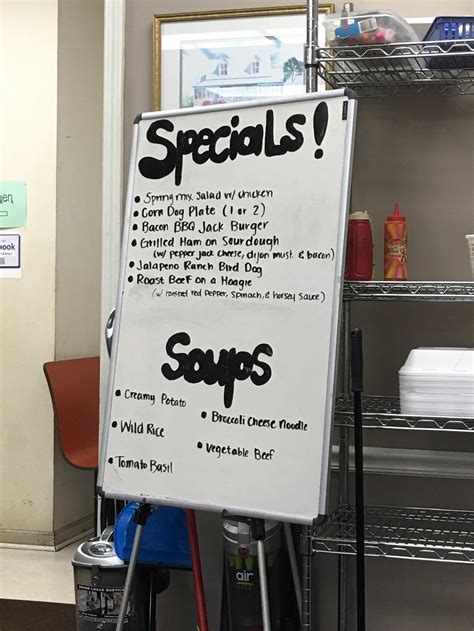 Specials!
• Spring mix Salad w/ chicken
• Corn Dog Plate (1 or 2)
• Bacon BBQ Jack Burger
• Grilled Ham on Sourdough
(w/ pepper jack cheese, dijon must. & bacon)
• Jalapeno Ranch Bird Dog
• Roast Beef on a Hoagie
(w/ roasted red pepper, spinach, & horsey sauce)
Soups
• Creamy Potato
• Broccoli Cheese Noodle
• Wild Rice
• Vegetable Beef
• Tomato Basil
air